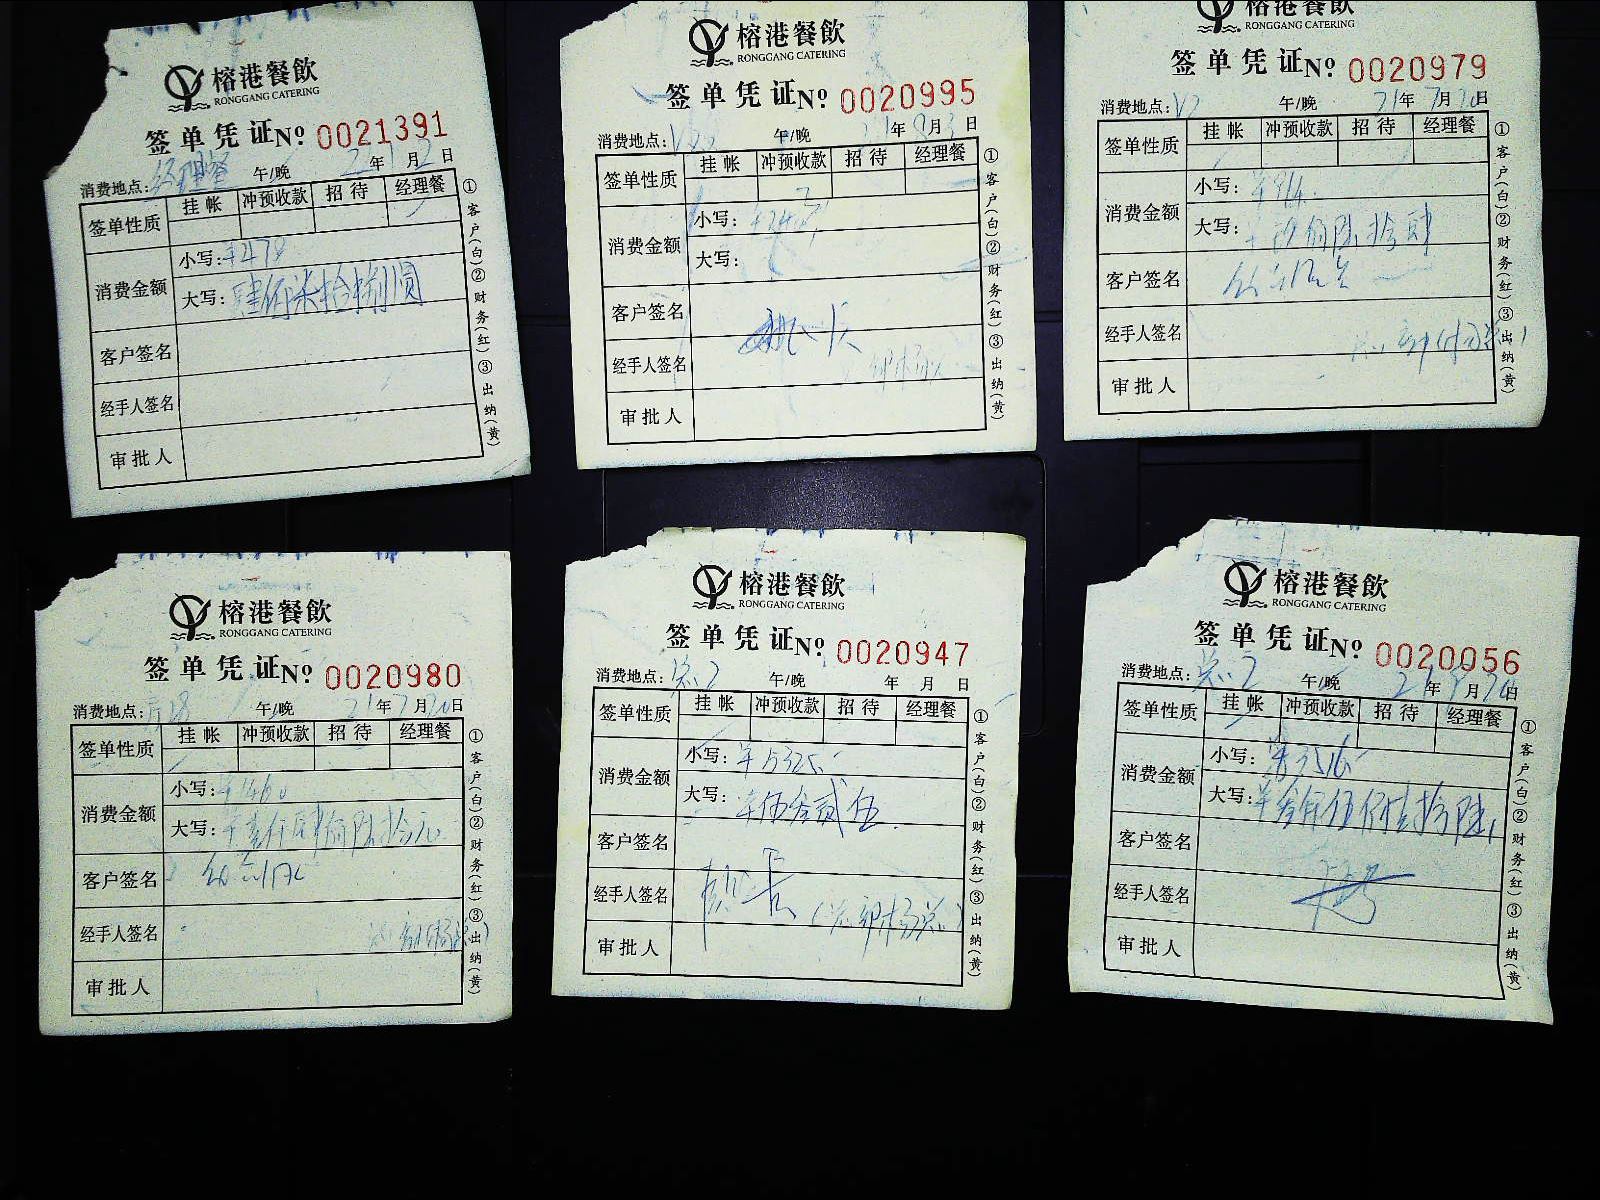 榕港餐飲
RONGGANG CATERING
签单凭证№ 0021391
消费地点: 经理餐 午/晚 年 月 日
签单性质 挂帐 冲预收款 招待 经理餐
消费金额 小写: ¥478
大写: 肆佰柒拾捌圆
客户签名
经手人签名
审批人
①客户(白)②财务(红)③出纳(黄)
榕港餐飲
RONGGANG CATERING
签单凭证№ 0020995
消费地点: 午/晚 年 8月 日
签单性质 挂帐 冲预收款 招待 经理餐
消费金额 小写:
大写:
客户签名
经手人签名
审批人
①客户(白)②财务(红)③出纳(黄)
榕港餐飲
RONGGANG CATERING
签单凭证№ 0020979
消费地点: 午/晚 21年7月20日
签单性质 挂帐 冲预收款 招待 经理餐
消费金额 小写:
大写: 佰陆拾肆
客户签名
经手人签名
审批人
①客户(白)②财务(红)③出纳(黄)
榕港餐飲
RONGGANG CATERING
签单凭证№ 0020980
消费地点: 午/晚 21年7月20日
签单性质 挂帐 冲预收款 招待 经理餐
消费金额 小写: ¥1460
大写: 壹仟肆佰陆拾元
客户签名
经手人签名
审批人
①客户(白)②财务(红)③出纳(黄)
榕港餐飲
RONGGANG CATERING
签单凭证№ 0020947
消费地点: 午/晚 年 月 日
签单性质 挂帐 冲预收款 招待 经理餐
消费金额 小写: ¥5325
大写: 伍叁贰伍
客户签名
经手人签名
审批人
①客户(白)②财务(红)③出纳(黄)
榕港餐飲
RONGGANG CATERING
签单凭证№ 0020056
消费地点: 午/晚 21年 月 日
签单性质 挂帐 冲预收款 招待 经理餐
消费金额 小写: 3516
大写: 叁仟伍佰壹拾陆
客户签名
经手人签名
审批人
①客户(白)②财务(红)③出纳(黄)